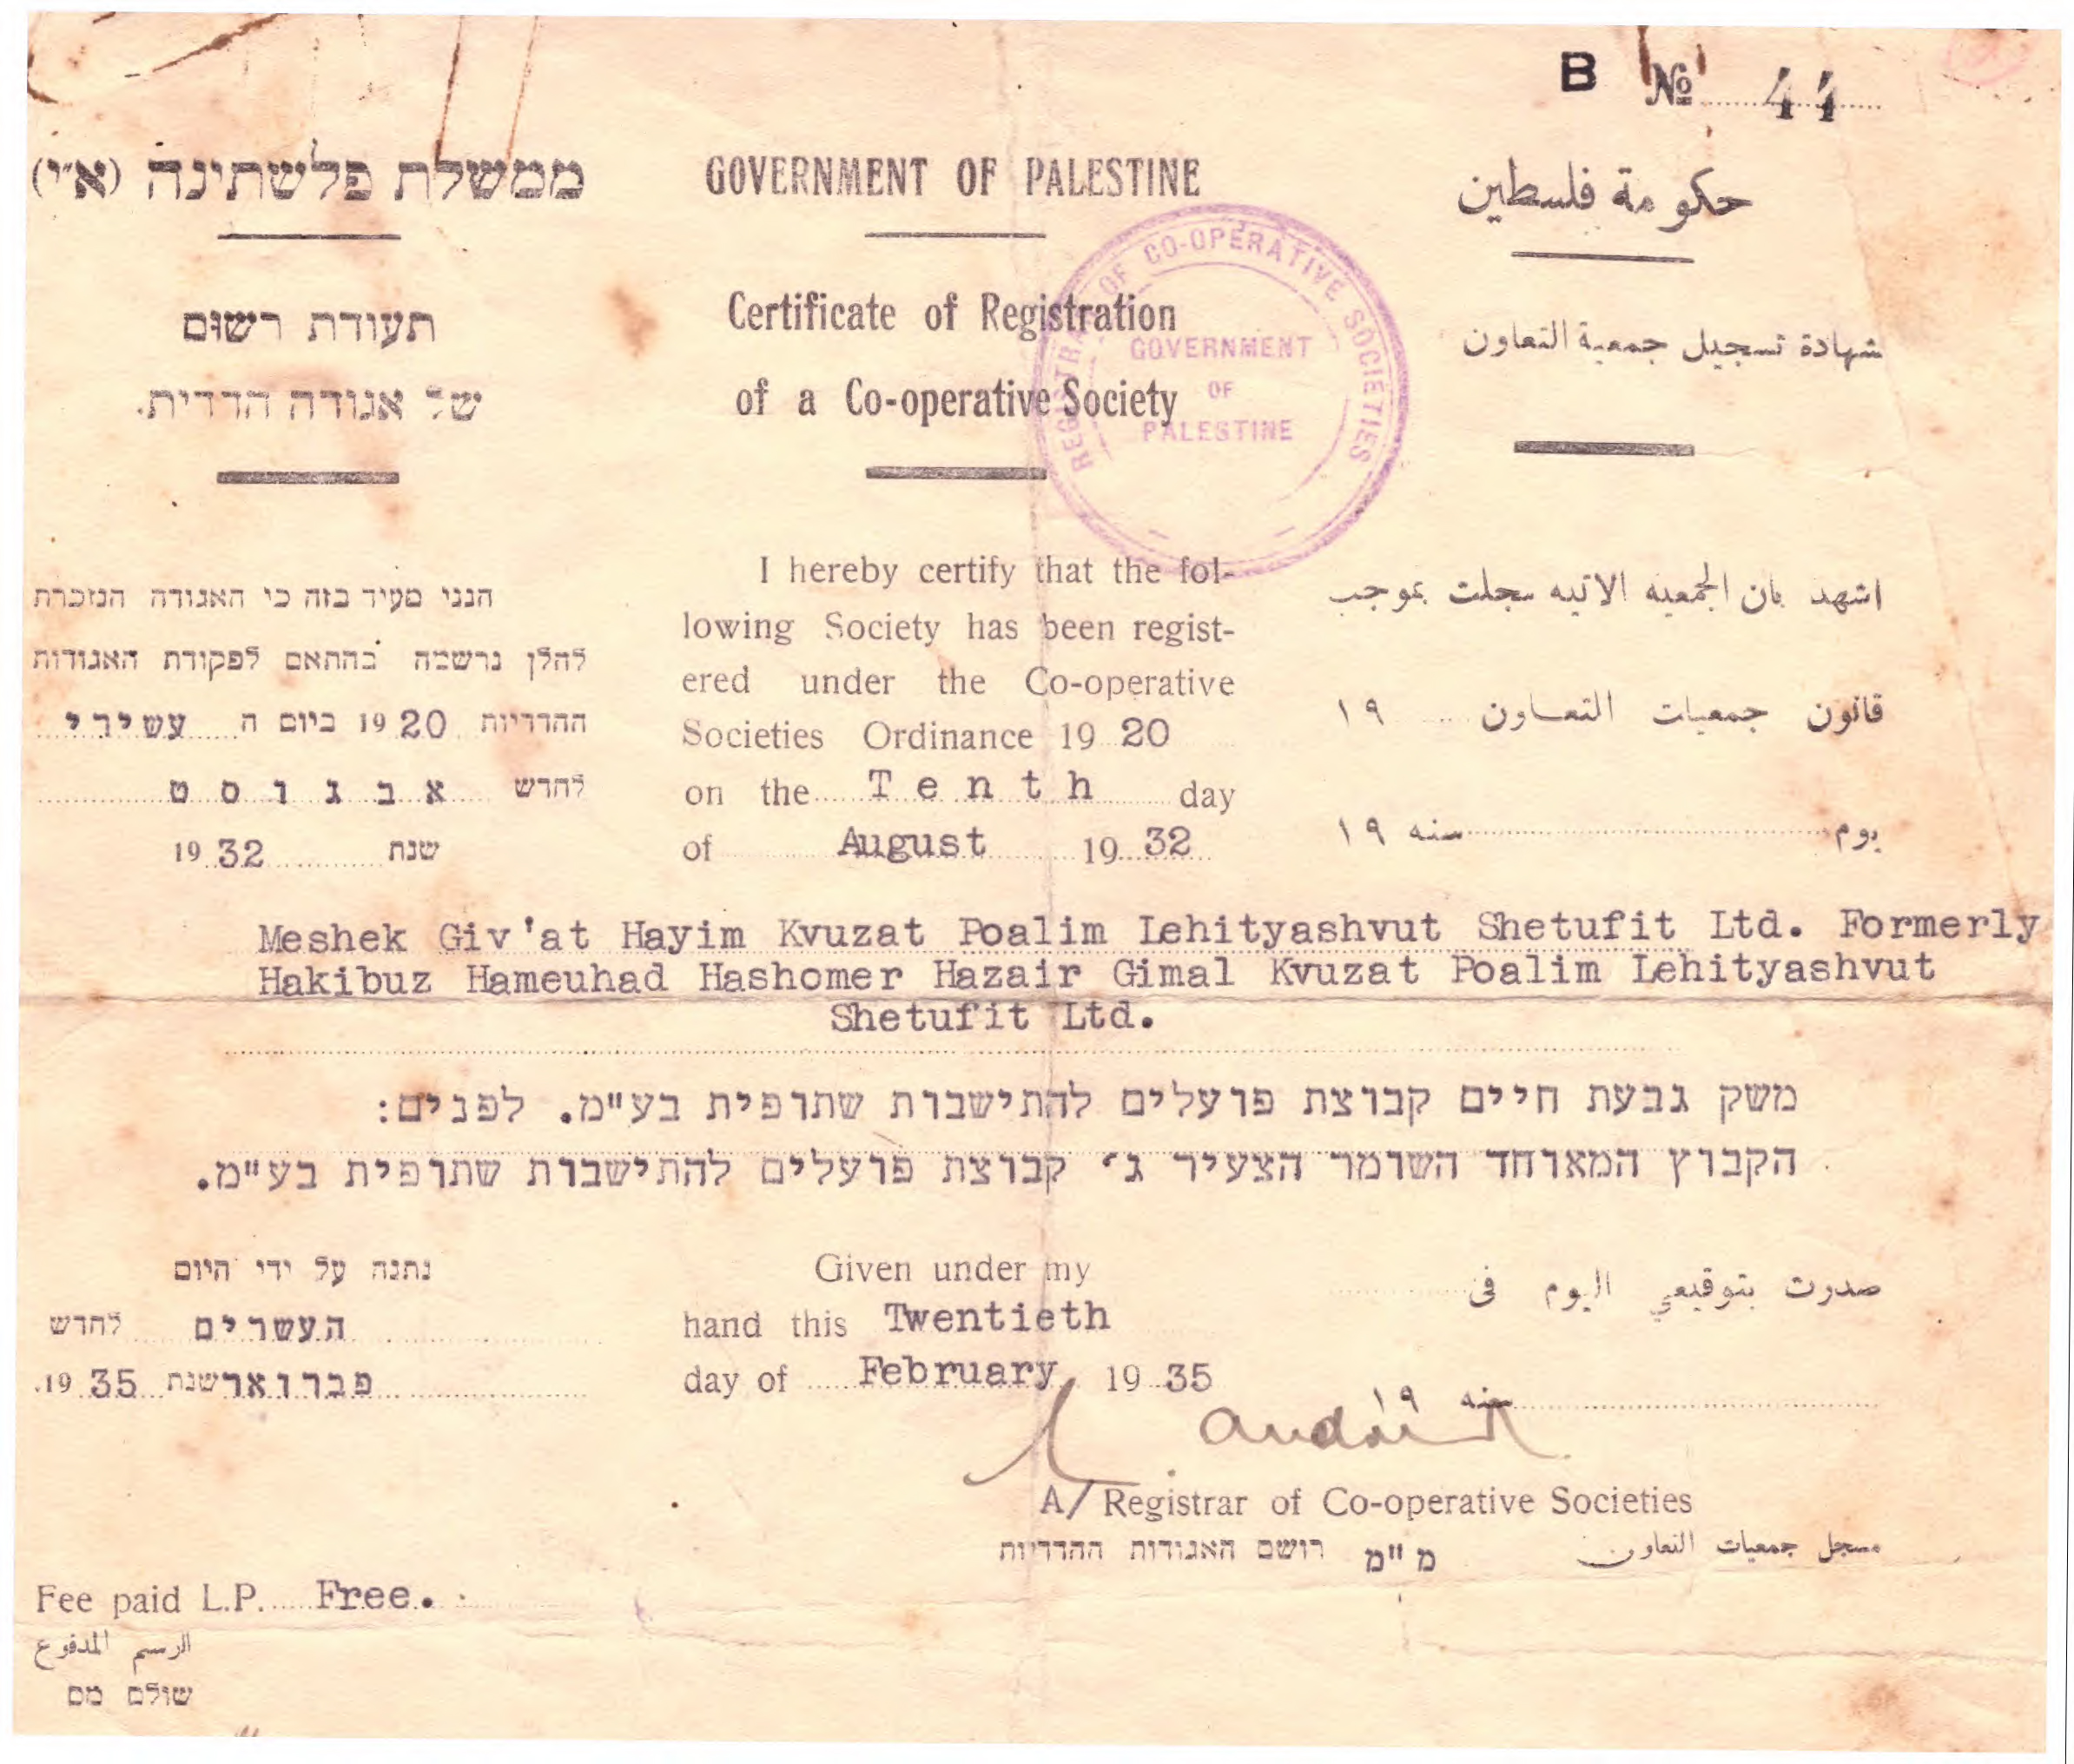 B № 44
ממשלת פלשתינה (א״י)
תעודת רשום
של אגודה הדדית.
הנני מעיד בזה כי האגודה הנזכרת
להלן נרשמה בהתאם לפקודת האגודות
ההדדיות 1920 ביום ה עשירי
לחדש אבגוסט
שנת 1932
GOVERNMENT OF PALESTINE
Certificate of Registration
of a Co-operative Society
REGISTRAR OF CO-OPERATIVE SOCIETIES
GOVERNMENT
OF
PALESTINE
I hereby certify that the fol-
lowing Society has been regist-
ered under the Co-operative
Societies Ordinance 19 20
on the Tenth day
of August 19 32
حكومة فلسطين
شهادة تسجيل جمعية التعاون
اشهد بان الجمعيه الاتيه سجلت بموجب
قانون جمعيات التعاون ١٩
يوم سنه ١٩
Meshek Giv'at Hayim Kvuzat Poalim Lehityashvut Shetufit Ltd. Formerly
Hakibuz Hameuhad Hashomer Hazair Gimal Kvuzat Poalim Lehityashvut
Shetufit Ltd.
משק גבעת חיים קבוצת פועלים להתישבות שתופית בע"מ. לפנים:
הקבוץ המאוחד השומר הצעיר ג' קבוצת פועלים להתישבות שתופית בע"מ.
נתנה על ידי היום
העשרים לחדש
פברואר שנת 1935.
Given under my
hand this Twentieth
day of February 19 35
صدرت بتوقيعي اليوم فى
سنه ١٩
A/ Registrar of Co-operative Societies
מ"מ רושם האגודות ההדדיות
مسجل جمعيات التعاون
Fee paid L.P. Free.
الرسم المدفوع
שולם מס